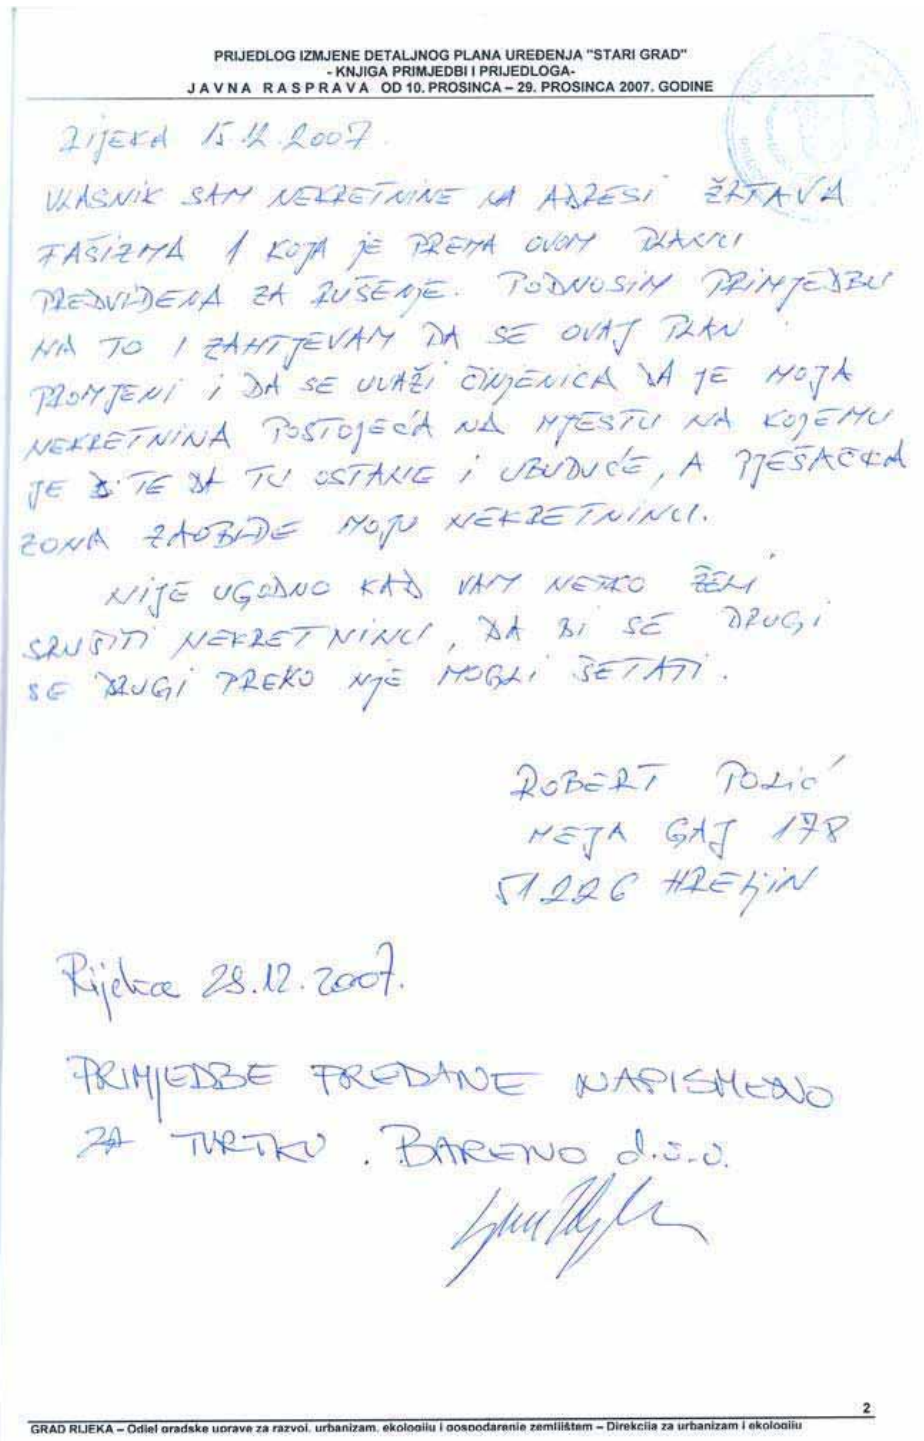 PRIJEDLOG IZMJENE DETALJNOG PLANA UREĐENJA "STARI GRAD"
- KNJIGA PRIMJEDBI I PRIJEDLOGA-
JAVNA RASPRAVA OD 10. PROSINCA – 29. PROSINCA 2007. GODINE
RIJEKA 15.12.2007.
VLASNIK SAM NEKRETNINE NA ADRESI ŽRTAVA
FAŠIZMA 1 KOJA JE PREMA OVOM PLANU
PREDVIĐENA ZA RUŠENJE. PODNOSIM PRIMJEDBU
NA TO I ZAHTJEVAM DA SE OVAJ PLAN
PROMJENI I DA SE UVAŽI ČINJENICA DA JE MOJA
NEKRETNINA POSTOJEĆA NA MJESTU NA KOJEMU
JE TE DA TU OSTANE I UBUDUĆE, A PJEŠAČKA
ZONA ZAOBIĐE MOJU NEKRETNINU.
NIJE UGODNO KAD VAM NETKO ŽELI
SRUŠITI NEKRETNINU, DA BI SE DRUGI
SE DRUGI PREKO NJE MOGLI ŠETATI.
ROBERT POLIĆ
MEJA GAJ 178
51226 HRELJIN
Rijeka 28.12.2007.
PRIMJEDBE PREDANE NAPISMENO
ZA TVRTKU . BARENO d.o.o.
2
GRAD RIJEKA – Odjel gradske uprave za razvoj, urbanizam, ekologiju i gospodarenje zemljištem – Direkcija za urbanizam i ekologiju